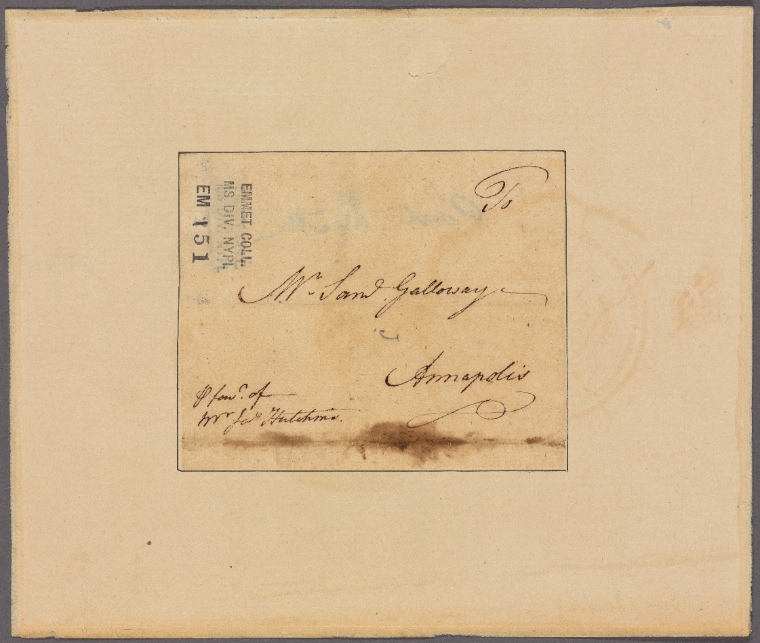 To
Mr. Saml. Galloway
Annapolis
P favr. of
Mr Jas Hutchins.
EMMET COLL.
MS. DIV. NYPL
EM 151